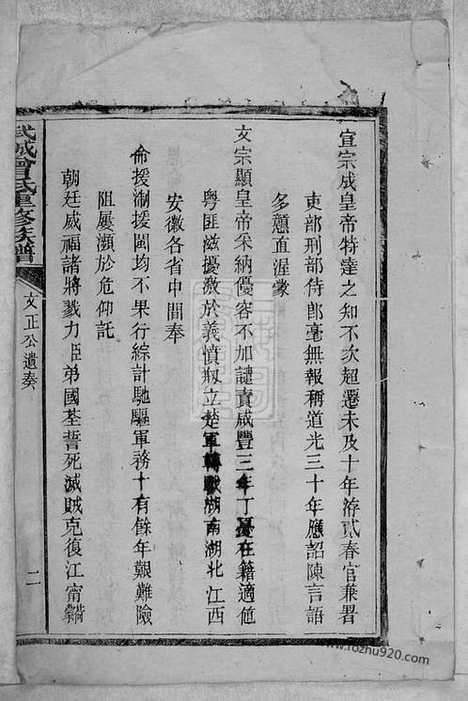 宣宗成皇帝特達之知不次超遷未及十年洊貳春官兼署
吏部刑部侍郎毫無報稱道光三十年應詔陳言語
多戇直渥蒙
文宗顯皇帝采納優容不加譴責咸豐三年丁憂在籍適値
粵匪滋擾激於義憤剏立楚軍轉戰湖南湖北江西
安徽各省中間奉
命援淛援閩均不果行綜計馳驅軍務十有餘年艱難險
阻屢瀕於危仰託
朝廷威福諸將戮力臣弟國荃誓死滅賊克復江甯
武城曾氏重修族譜
文正公遺奏
二
www.rozhu920.com